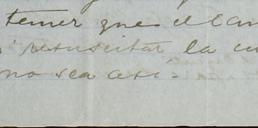 temer que el can
resuscitar la cu
no sea asi.